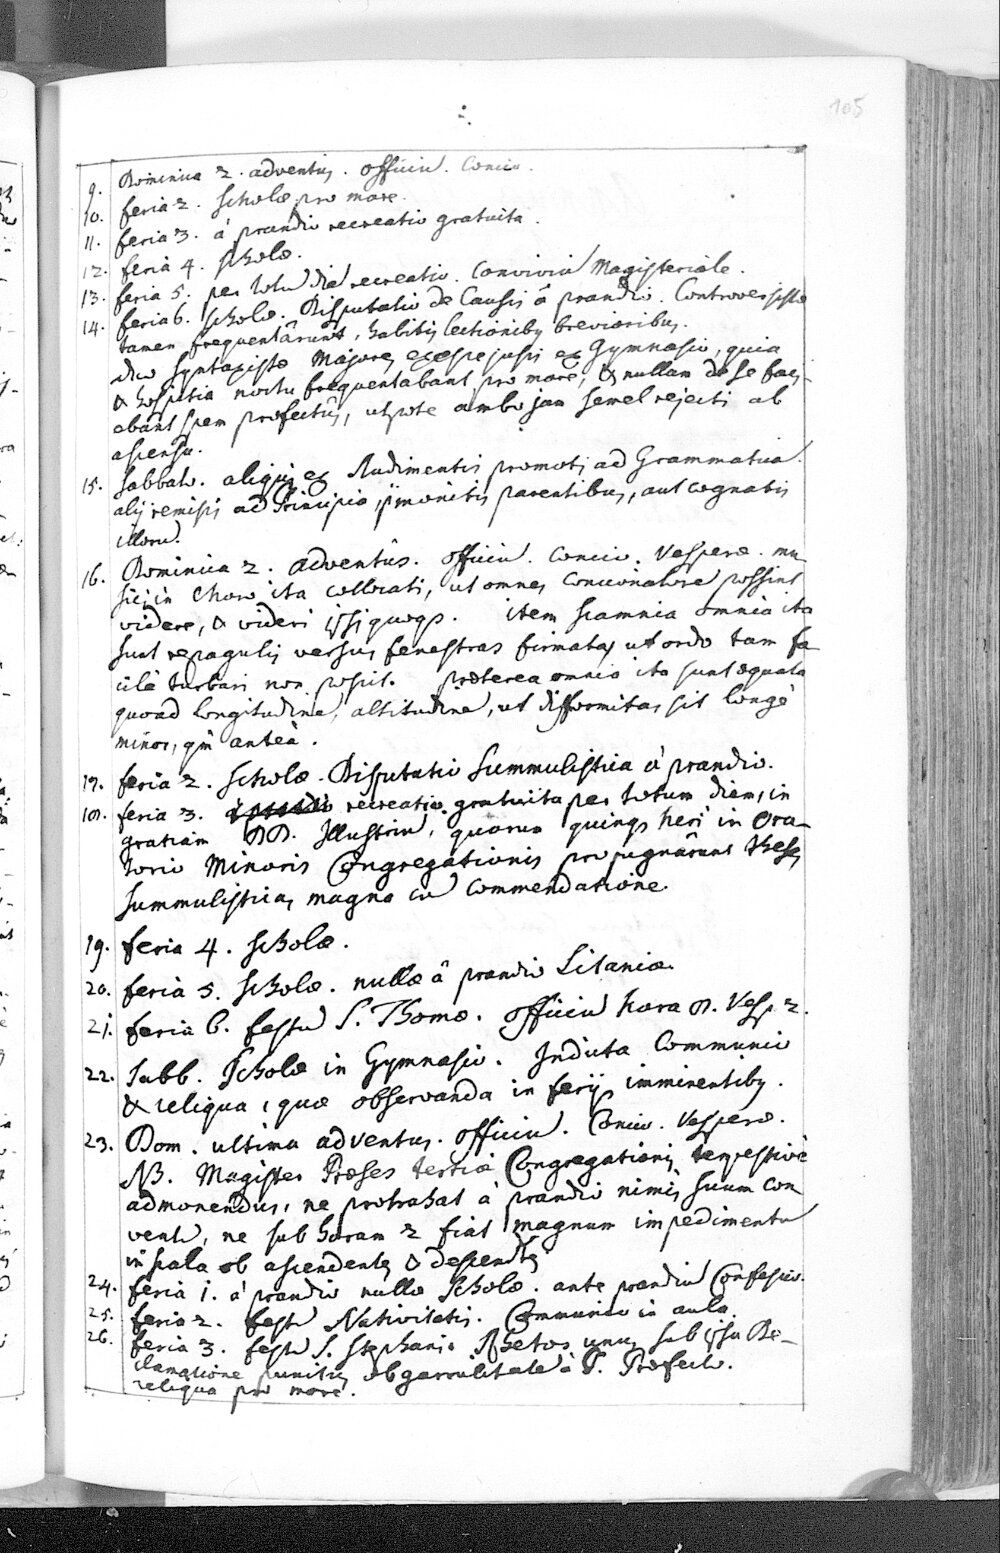 105
9. Dominica 2. adventus. officiū. Concio.
10. feria 2. scholæ pro more.
11. feria 3. à prandio recreatio gratuita.
12. feria 4. scholæ.
13. feria 5. per totū diē recreatio. Conviviū Magisteriale.
14. feria 6. scholæ. Disputatio de Causis â prandio. Controversistæ
tamen frequentârunt, habitis lectionibȝ brevioribus.
duo syntaxistæ Majores ex Gymnasio, quia
& hospitia noctu frequentabant pro more, & nullam de se faci-
ebant spem profectûs, utpote ambo jam semel rejecti ab
ascensu.
15. Sabbato. aliqui ex Rudimentis promoti ad Grammaticā.
alij remissi ad Principia, monitis parentibus, aut cognatis
illorū.
16. Dominica 2. adventûs. officiū. concio. Vesperæ. mu
sici in choro ita collocati, ut omnes Concionatorē possint
videre, & videri ipsi quoqȝ. item scamnia omnia ita
sunt repagulis versus fenestras firmata, ut ordo tam fa
cilè turbari non possit. præterea omnia ita sunt æquata
quoad longitudinē, altitudinē, ut difformitas sit longè
minor, qm̄ anteà.
17. feria 2. scholæ. Disputatio Summulistica à prandio.
18. feria 3. recreatio gratuita per totum diem, in
gratiam DD. Illustriū, quorum quinqȝ heri in Ora-
torio Minoris Congregationis propugnârunt theses
summulisticas magna cū commendatione.
19. feria 4. scholæ.
20. feria 5. scholæ. nullæ â prandio Litaniæ.
21. feria 6. festū S. Thomæ. officiū hora 8. Vesp 2.
22. Sabb. Scholæ in Gymnasio. Indicta Communio
& reliqua, quæ observanda in ferijs imminentibȝ.
23. Dom. ultima adventus. officiū. Concio. Vesperæ.
NB. Magister Præses tertiæ Congregationis tempestivè
admonendus, ne protrahat à prandio nimis suum con
ventū, ne sub horam 2 fiat magnum impedimentū
in scala ob ascendentes & descendtes
24. feria 1. à prandio nullæ Scholæ. ante prandiū Confessio.
25. feria 2. festū Nativitatis. Communio in aula.
26. feria 3. festū S. Stephani. Rhetor unus sub ipsa De-
clamatione punitus ob garrulitatē à P. Præfecto.
reliqua pro more.